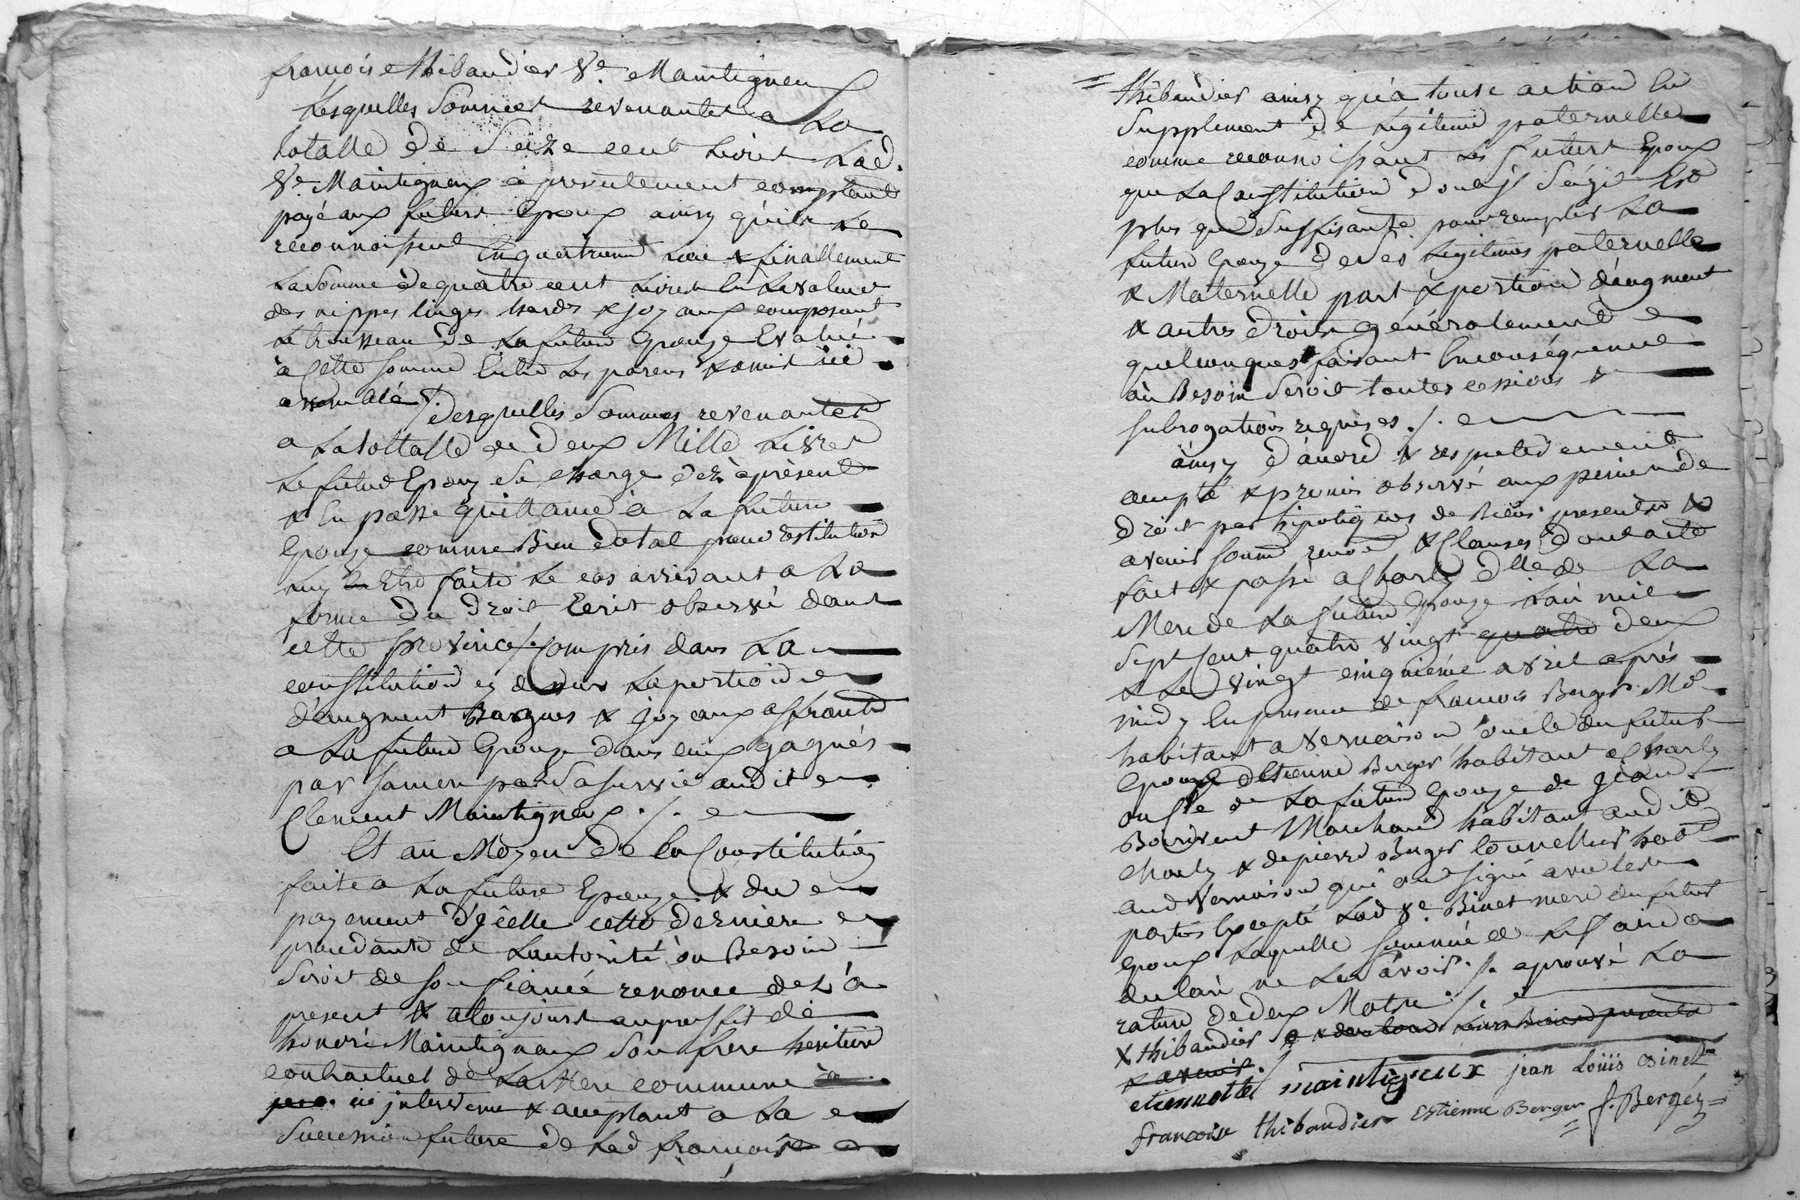 françoise thibaudier Ve. Maintigneux
Lesquelles Sommes revenantes a La
totalle de Seize cent Livres Lad.
Ve. Maintigneux a presentement comptant
payé aux futurs Epoux ainsy qu'ils Le
reconnoissent En quatrieme Lieu & finallement
La Somme de quatre cent Livres En La valeur
des nippes linges hardes & joyaux composant
Le trousseau de La future Epouse Evalué
a Cette somme Entre Les parens & amis icy
assemblés. Desquelles Sommes revenantes
a La tottalle de deux Mille Livres
Le futur Epoux Se charge dez àprésent
& En passe quittance à La future
Epouse comme Bien dotal pour restitution
luy En Etre faite Le cas arrivant a La
forme du droit Ecrit observé dans
cette province Compris dans La
constitution cy dessus La portion
d'augment Bagues & joyaux afferants
a La future Epouse dans ceux gagnés
par sa mere par Sa survie audit
Clement Maintigneux ./.
Et au Moyen de La Constitution
faite a La future Epouse & du
payement d'icelle cette derniere
procedante de L'autorité où Besoin
Seroit de son fiancé renonce dez à
present & a toujours au proffit de
honoré Maintigneux Son frere heritier
contractuel de La Mere commune
ici intervenu & acceptant a La
Succession future de Lad françoise
thibaudier ainsy qu'à toute action En
Supplement de Legitime paternelle
comme reconnoissant Les futurs Epoux
que La Constitution dont Il S'agit Est
plus que Suffisante pour remplir La
future Epouse de Ses Legitimes paternelle
& Maternelle part & portion d'augment
& autres droits généralement
quelconques faisant En conséquence
où Besoin Seroit toutes cessions &
subrogations requises ./.
ainsy d'acord & respectivement
accepté & promis observé aux peines de
droit par hipotèques de Biens presents &
avenir soumis renon & Clauses dont acte
fait & passé a Charly d'lle de La
Mere de La future Epouse L'an mil
Sept Cent quatre vingt quatre deux
& Le vingt cinquième avril après
midy En presence de francois Berger Md
habitant a Vernaison oncle du futur
Epoux d'Etienne Berger habitant a Charly
oncle de La future Epouse de jean
Bonivent Marchand habitant audit
Charly & de pierre Berger tonnellier habt
aud Vernaison qui ont signé avec Les
parties Excepté Lad Ve. Binet mere du futur
Epoux Laquelle sommée de Le faire a
declaré ne Le Savoir ./. aprouvé La
rature de deux Mots ./.
& thibaudier
& avenir ./.
etiennette maintigneux jean Loüis Binet
francoise thibaudier Estienne Berger f. Berger